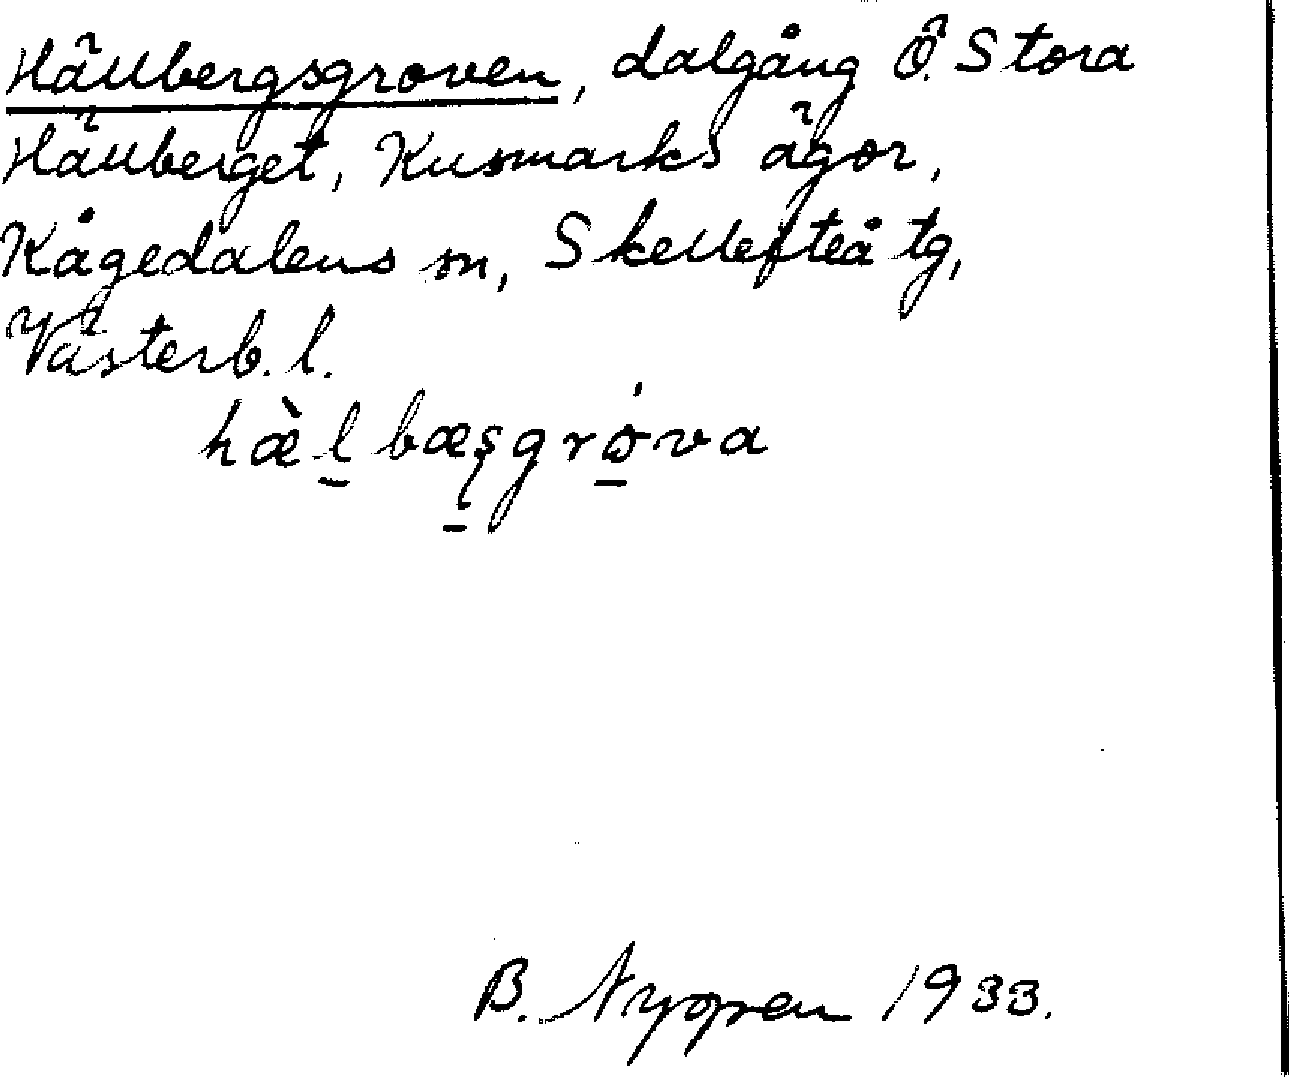 Hällbergsgroven, dalgång Ö. Stora
Hällberget, Kusmarks ägor,
Kågedalens sn, Skellefteå tg,
Västerb. l.
hæ̀l̠bæşgró̠va
B. 1933.